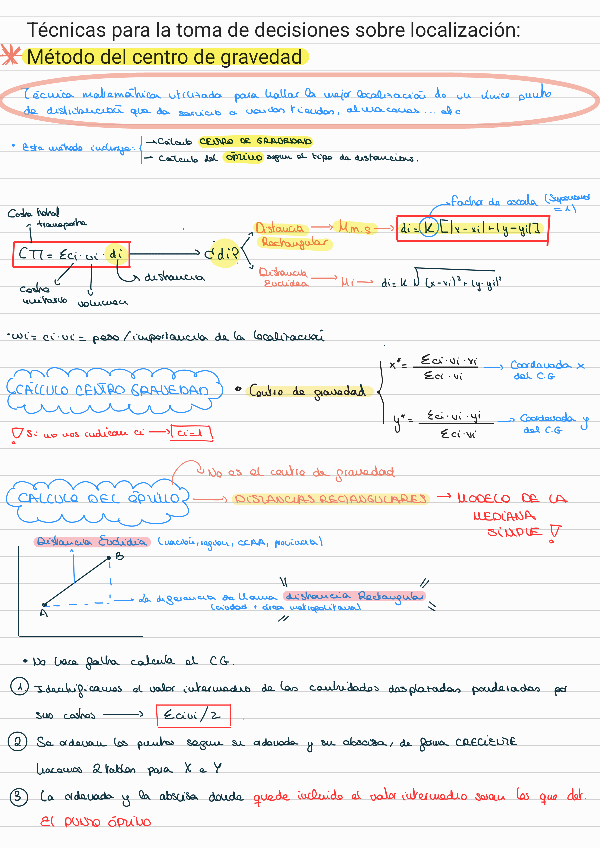 Técnicas para la toma de decisiones sobre localización:
Método del centro de gravedad
Técnica matemática utilizada para hallar la mejor localización de un único punto
de distribución que da servicio a varias tiendas, almacenes... etc
• Este método incluye: → Cálculo CENTRO DE GRAVEDAD
→ Cálculo del ÓPTIMO según el tipo de distancias.
Factor de escala (Suponemos = 1)
Coste total transporte
Distancia Rectangular → M.m.s → di = K [|x-xi| + |y-yi|]
CTT = Σci·vi·di → ¿di?
Distancia Euclídea → Mi → di = K √(x-xi)² + (y-yi)²
coste unitario
volumen
distancia
• wi = ci·vi = peso / importancia de la localización
CÁLCULO CENTRO GRAVEDAD • Centro de gravedad
x* = Σci·vi·xi / Σci·vi → Coordenada x del C.G
y* = Σci·vi·yi / Σci·vi → Coordenada y del C.G
Si no nos indican ci → ci=1
No es el centro de gravedad
CALCULO DEL ÓPTIMO → DISTANCIAS RECTANGULARES → MODELO DE LA
MEDIANA
SIMPLE
Distancia Euclídia (nación, region, CCAA, provincia)
B
A
La diferencia se llama distancia Rectangular
(ciudad + área metropolitana)
• No hace falta calcular el CG.
1 Identificamos el valor intermedio de las cantidades desplazadas ponderadas por
sus costes → Σcivi/2
2 Se ordenan los puntos segun su ordenada y su abscisa, de forma CRECIENTE
hacemos 2 tablas para X e Y
3 La ordenada y la abscisa donde quede incluido el valor intermedio seran los que det.
EL PUNTO ÓPTIMO